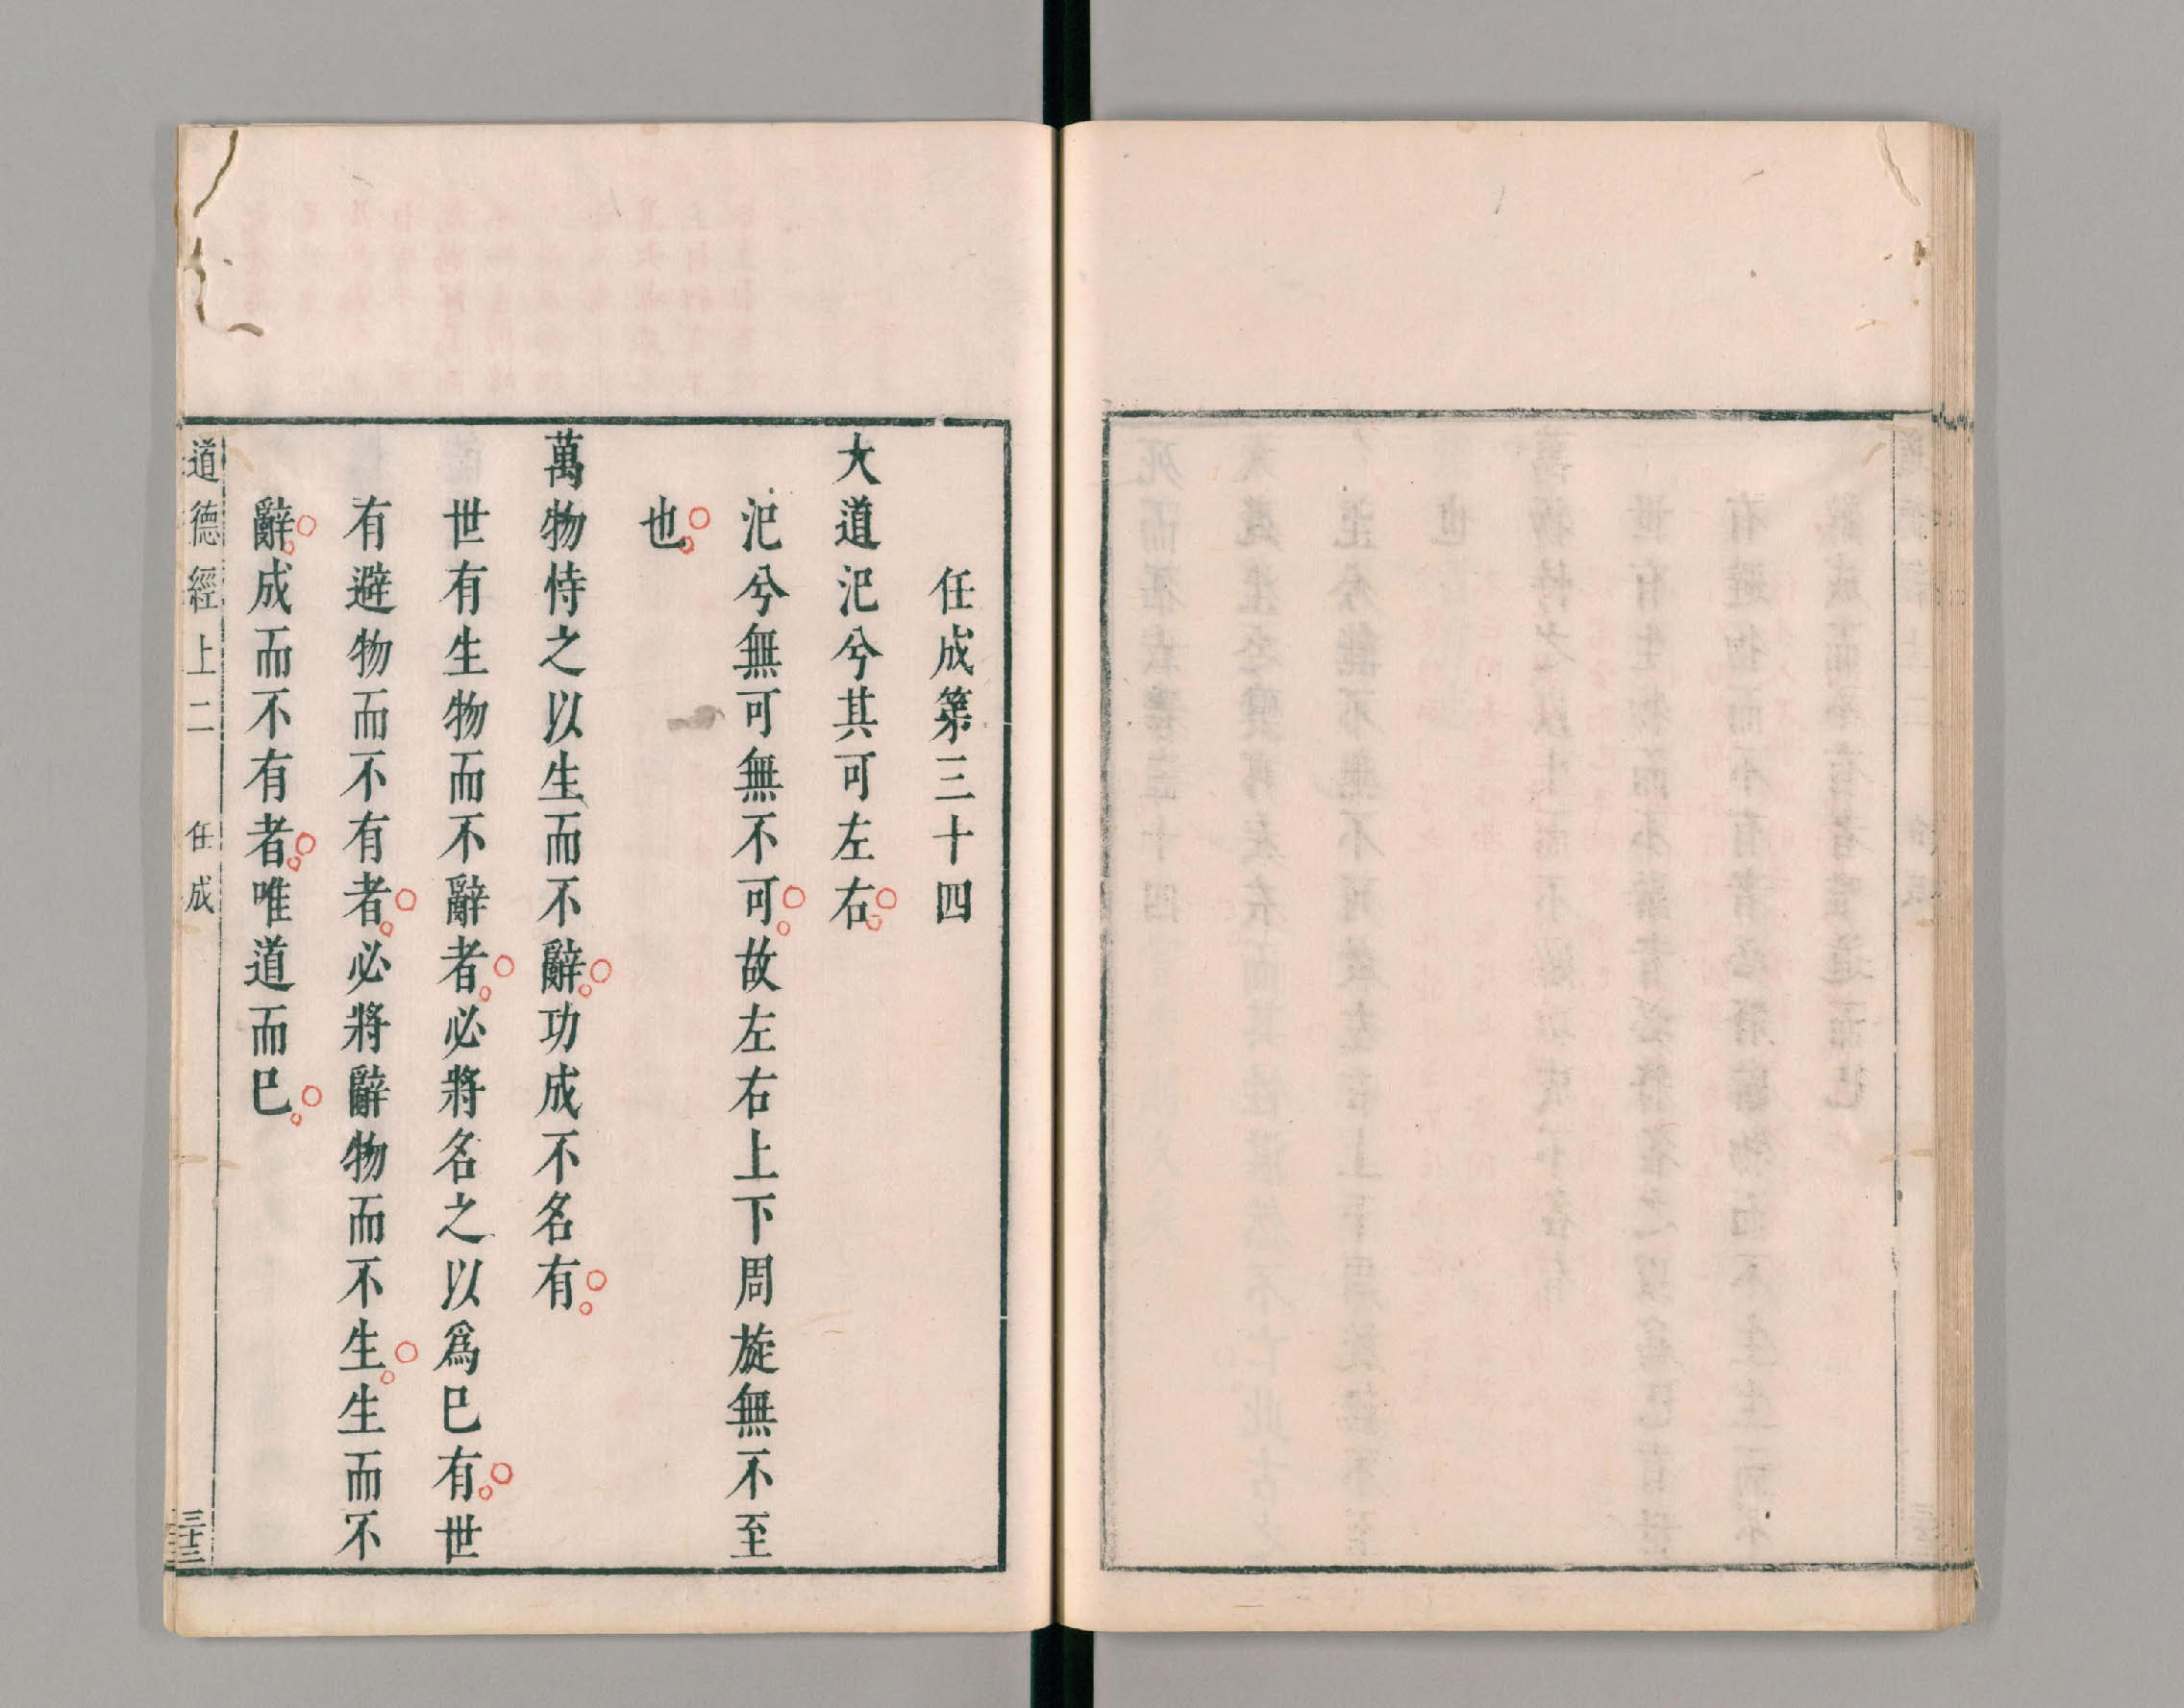 任成第三十四
大道汜兮其可左右
汜兮無可無不可故左右上下周旋無不至
也
萬物恃之以生而不辭功成不名有
世有生物而不辭者必將名之以爲巳有世
有避物而不有者必將辭物而不生生而不
辭成而不有者唯道而巳
道德經上二 任成 三十三